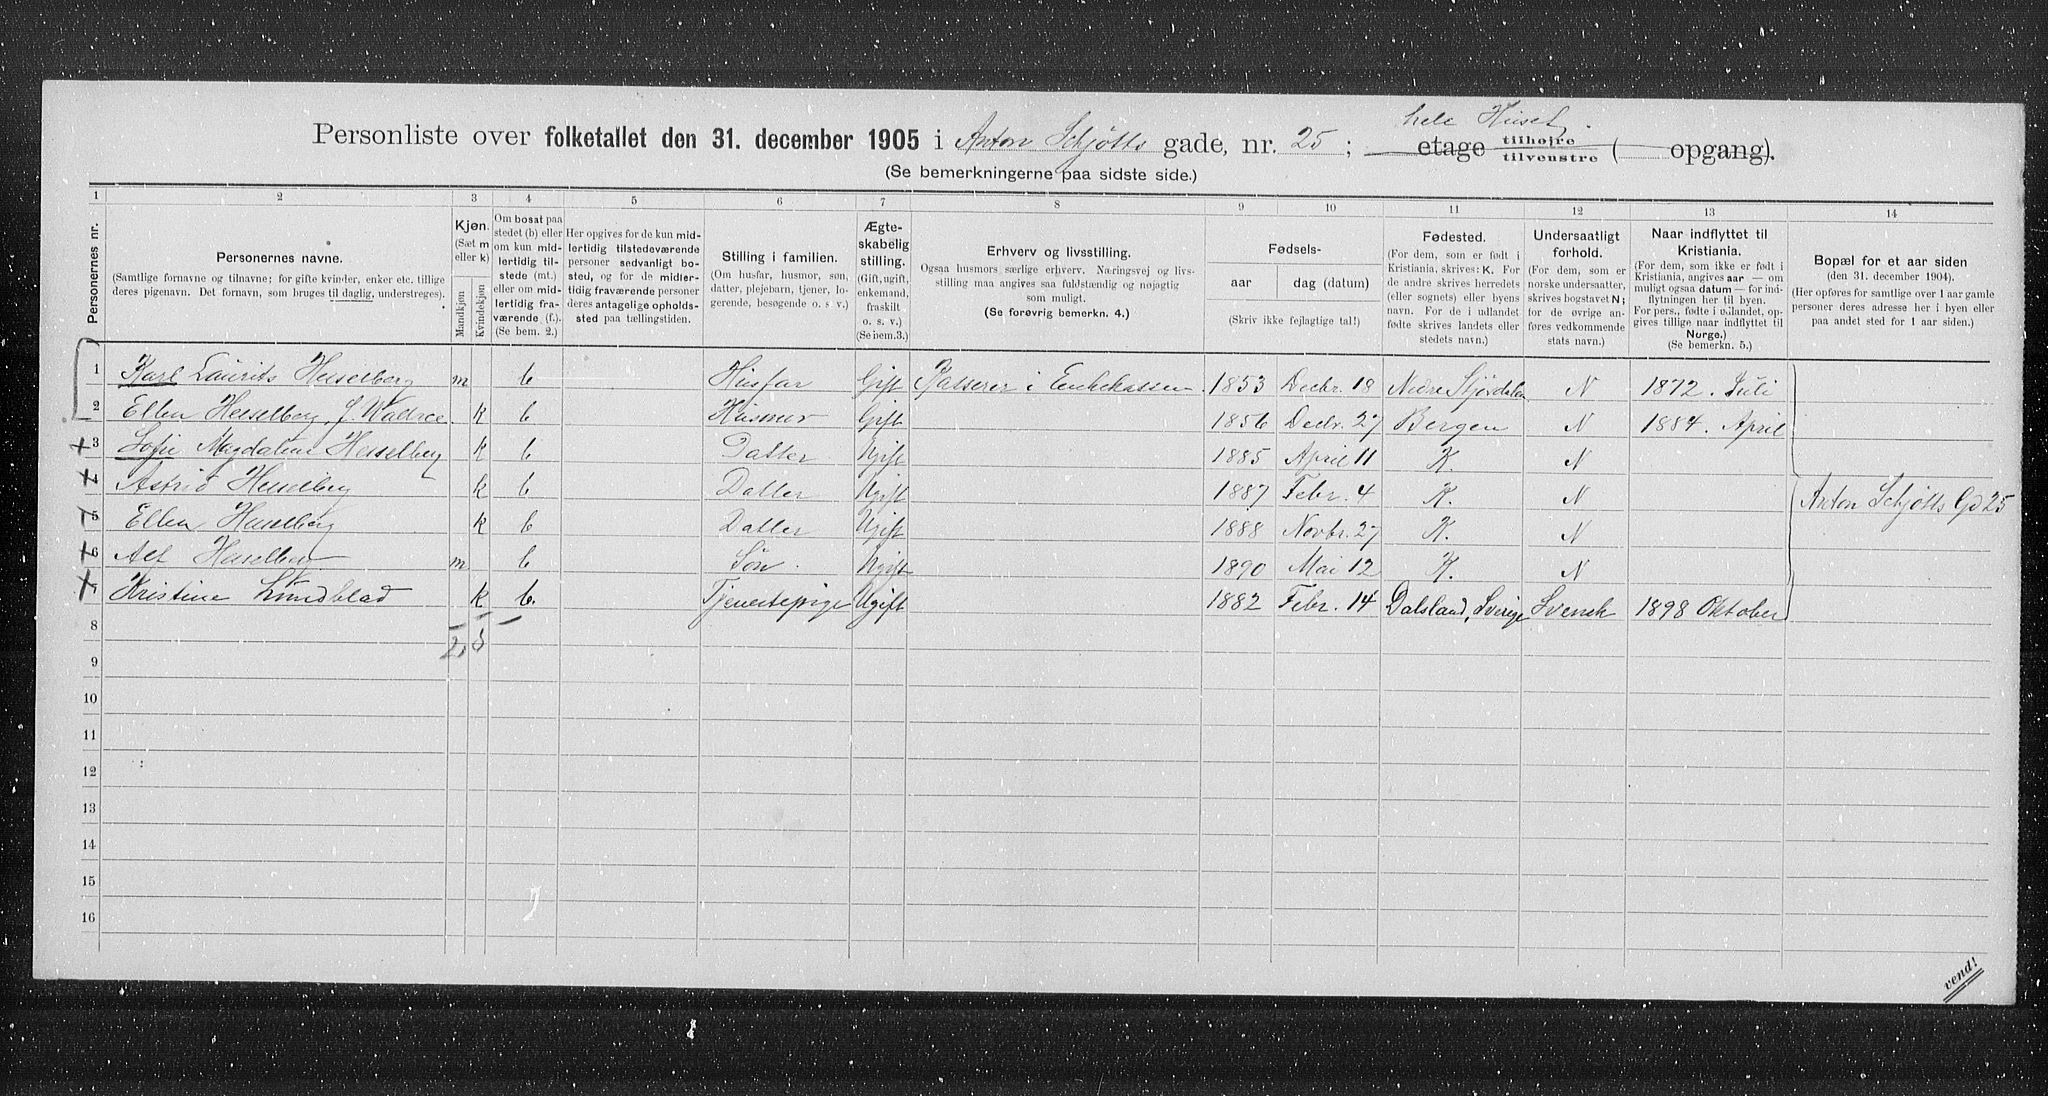 hele Huset.
Personliste over folketallet den 31. december 1905 i Anton Schjøtts gade, nr. 25; etage tilhøjre tilvenstre ( opgang).
(Se bemerkningerne paa sidste side.)
1 2 3 4 5 6 7 8 9 10 11 12 13 14
Personernes nr.
Personernes navne.
(Samtlige fornavne og tilnavne; for gifte kvinder, enker etc. tillige
deres pigenavn. Det fornavn, som bruges til daglig, understreges).
Kjøn.
(Sæt m
eller k)
Mandkjøn
Kvindekjøn
Om bosat paa
stedet (b) eller
om kun mid-
lertidig til-
stede (mt.)
eller om mid-
lertidig fra-
værende (f.).
(Se bem. 2.)
Her opgives for de kun mid-
lertidig tilstedeværende
personer sedvanlig bo-
sted, og for de midler-
tidig fraværende personer
deres antagelige opholds-
sted paa tællingstiden.
Stilling i familien.
(Om husfar, husmor, søn,
datter, plejebarn, tjener, lo-
gerende, besøgende o. s. v.)
Ægte-
skabelig
stilling.
(Gift, ugift,
enkemand,
fraskilt
o. s. v.)
(Se bem.3.)
Erhverv og livsstilling.
Ogsaa husmors særlige erhverv. Næringsvej og livs-
stilling maa angives saa fuldstændig og nøjagtig
som muligt.
(Se forøvrig bemerkn. 4.)
Fødsels-
aar dag (datum)
(Skriv ikke fejlagtige tal!)
Fødested.
(For dem, som er født i
Kristiania, skrives: K. For
de andre skrives herredets
(eller sognets) eller byens
navn. For de i udlandet
fødte skrives landets eller
stedets navn.)
Undersaatligt
forhold.
(For dem, som er
norske undersaatter,
skrives bogstavet N;
for de øvrige an-
føres vedkommende
stats navn.)
Naar indflyttet til
Kristiania.
(For dem, som ikke er født i
Kristiania, angives aar — om
muligt ogsaa datum — for ind-
flytningen her til byen.
For pers., fødte i udlandet, op-
gives tillige naar indflyttet til
Norge.)
(Se bemerkn. 5.)
Bopæl for et aar siden
(den 31. december 1904).
(Her opføres for samtlige over 1 aar gamle
personer deres adresse her i byen eller
paa andet sted for 1 aar siden.)
1 Karl Laurits Hesselberg m b Husfar Gift Kasserer i Enkekassen 1853 Decbr. 18 Nedre Stjørdalen N 1872. Juli
2 Ellen Hesselberg, f. k b Husmor Gift 1856 Decbr. 27 Bergen N 1884. April
3 Sofie Magdalene Hesselberg k b Datter Ugift 1885 April 11 K. N
4 Astrid Hesselberg k b Datter Ugift 1887 Febr. 4 K. N Anton Schjøtts Gd 25
5 Ellen Hesselberg k b Datter Ugift 1888 Novbr. 27 K. N
6 Hesselberg m b Søn. Ugift 1890 Mai 12 K. N
7 Kristine Lundblad k b. Tjenestepige Ugift 1882 Febr. 14 Dalsland, Sverige Svensk 1898 Oktober
8
2 5
9
10
11
12
13
14
15
16
vend!